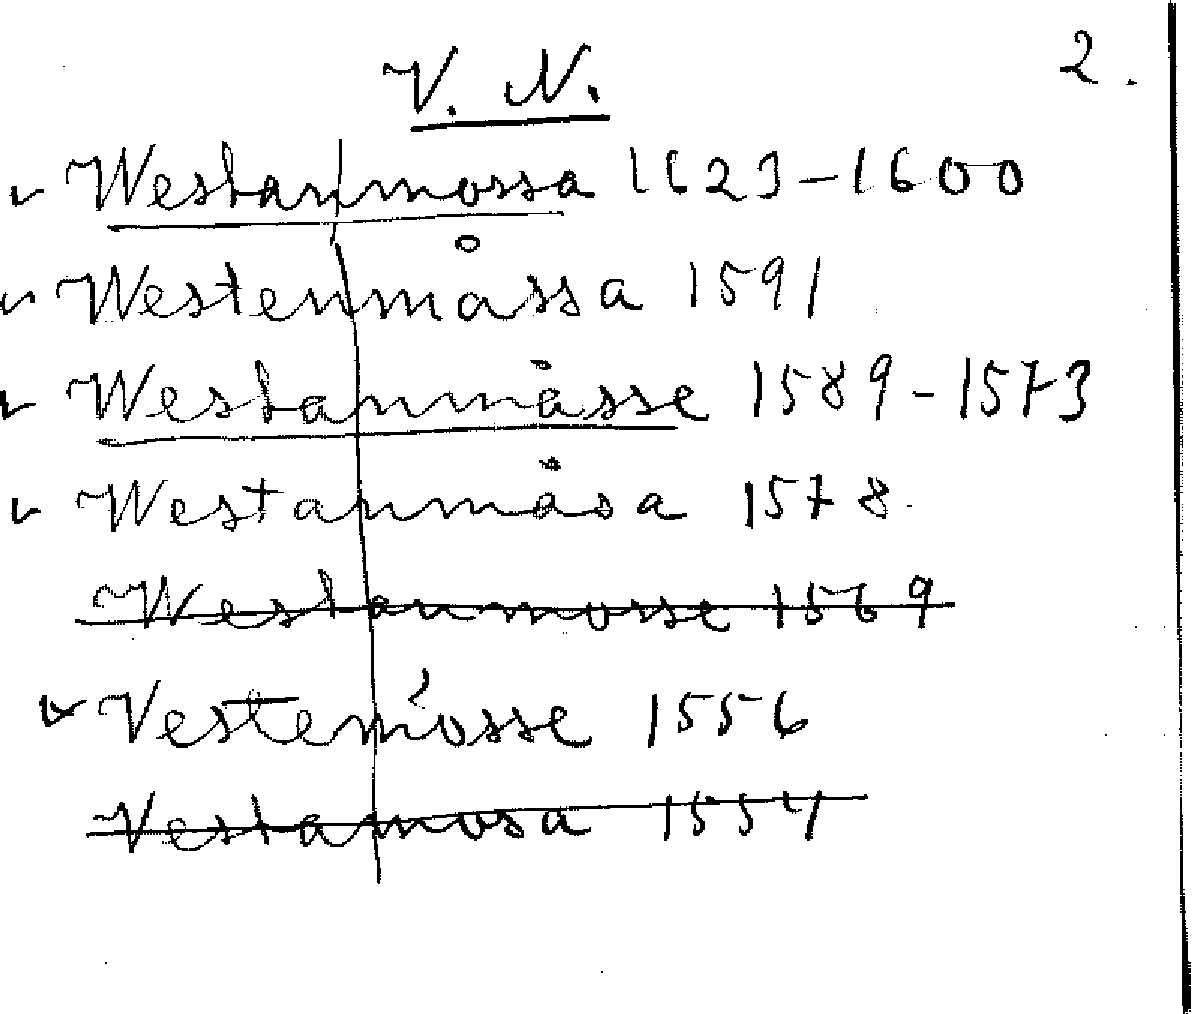 2.
V. N.
Westanmossa 1623-1600
Westenmåssa 1591
Westanmåsse 1589-1573
Westanmåsa 1578
Westanmosse 1569
Vestemosse 1556
Vestamosa 1554